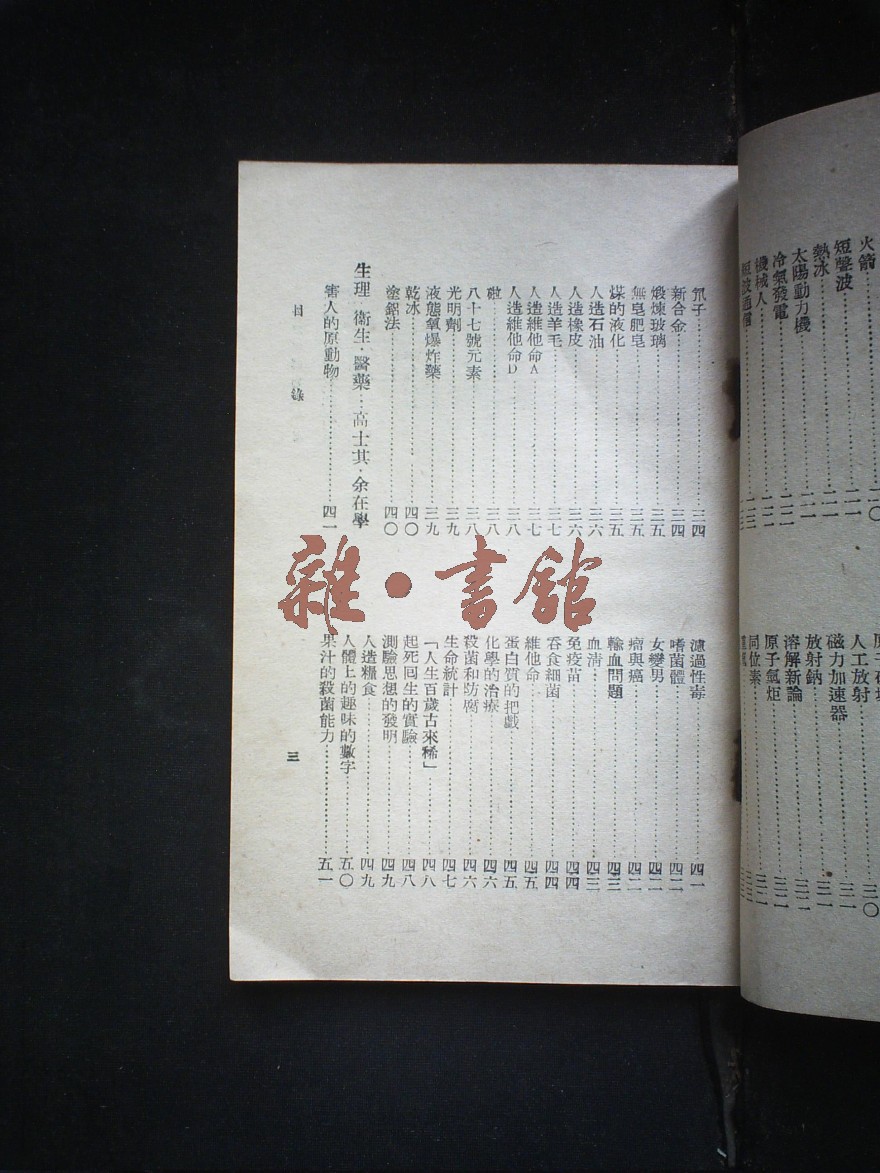 火箭……二〇
短聲波……二一
熱冰……二一
太陽動力機……二一
冷氣發電……二二
機械人……二二
短波通信……二三
人工放射……三〇
磁力加速器……三一
放射鈉……三一
溶解新論……三二
原子氣炬……三二
同位素……三三
氘子……三四
新合金……三四
煅煉玻璃……三五
無皂肥皂……三五
煤的液化……三五
人造石油……三六
人造橡皮……三六
人造羊毛……三七
人造維他命A……三七
人造維他命D……三八
𥐻……三八
八十七號元素……三八
光明劑……三九
液態氧爆炸藥……三九
乾冰……四〇
塗鋁法……四〇
生理·衛生·醫藥…高士其·余在學
害人的原動物……四一
濾過性毒……四一
嗜菌體……四二
女變男……四二
瘤與癌……四二
輸血問題……四三
血清……四三
免疫苗……四四
吞食細菌……四四
維他命……四五
蛋白質的把戲……四五
化學的治療……四六
殺菌和防腐……四六
生命統計……四七
「人生百歲古來稀」……四八
起死囘生的實驗……四八
測驗思想的發明……四九
人造糧食……四九
人體上的趣味的數字……五〇
果汁的殺菌能力……五一
目錄
三
雜·書館